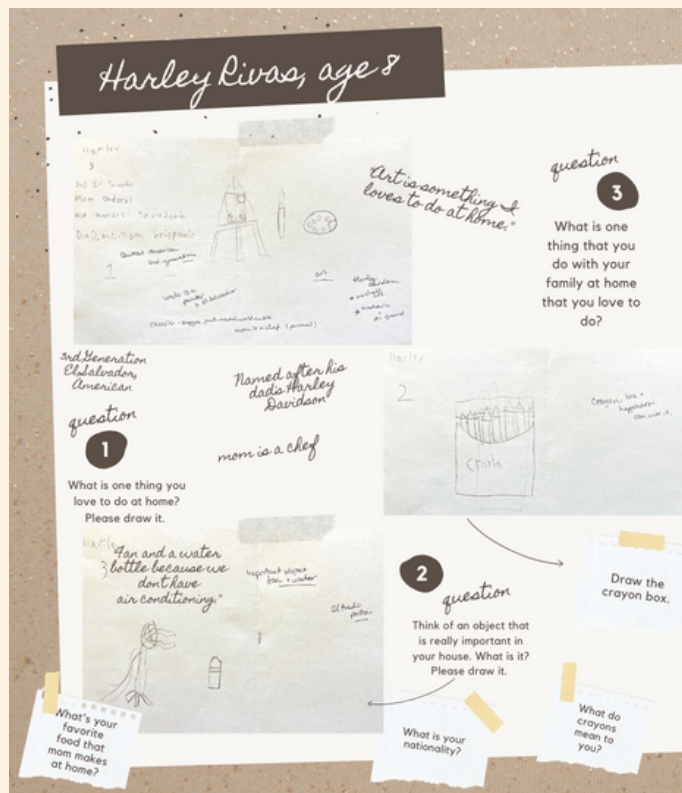 Harley Rivas, age 8
Harley
8
Mom
DaD, me, mom hispanic
1
art
"Art is something I
loves to do at home."
question
3
What is one
thing that you
do with your
family at home
that you love to
do?
3rd Generation
El Salvador,
American
Named after his
dad's Harley
Davidson
mom is a chef
question
1
What is one thing you
love to do at home?
Please draw it.
Harley
2
Crayon box =
happiness
Harley
3
"Fan and a water
bottle because we
don't have
air conditioning."
important object
fan + water
alfredo
pasta
2
question
Think of an object that
is really important in
your house. What is it?
Please draw it.
Draw the
crayon box.
What's your
favorite
food that
mom makes
at home?
What is your
nationality?
What do
crayons
mean to
you?